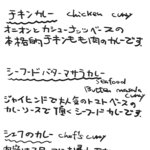 チキンカレー chicken curry
オニオンとカシューナッツベースの
本格的チキンもも肉のカレーです
シーフードバターマサラカレー
Seafood
Butter masala
curry
ジャイヒンドで大人気のトマトベースの
カレーソースで頂くシーフードカレーです
シェフのカレー chef's curry